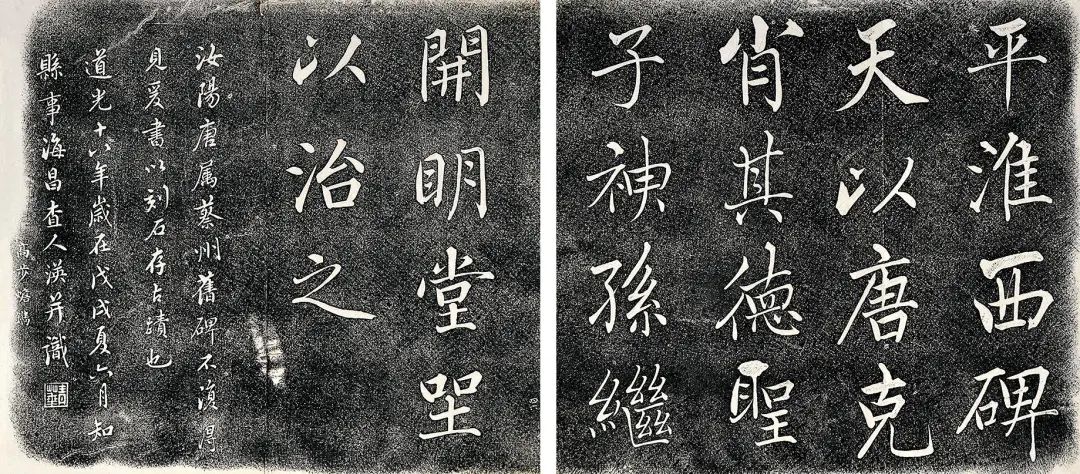 平淮西碑
天以唐克
肖其德聖
子神孫繼
開明堂㘴
以治之
汝陽唐属蔡州舊碑不復得
見爰書以刻石存古蹟也
道光十八年歲在戊戌夏六月知
縣事海昌查人渶并識